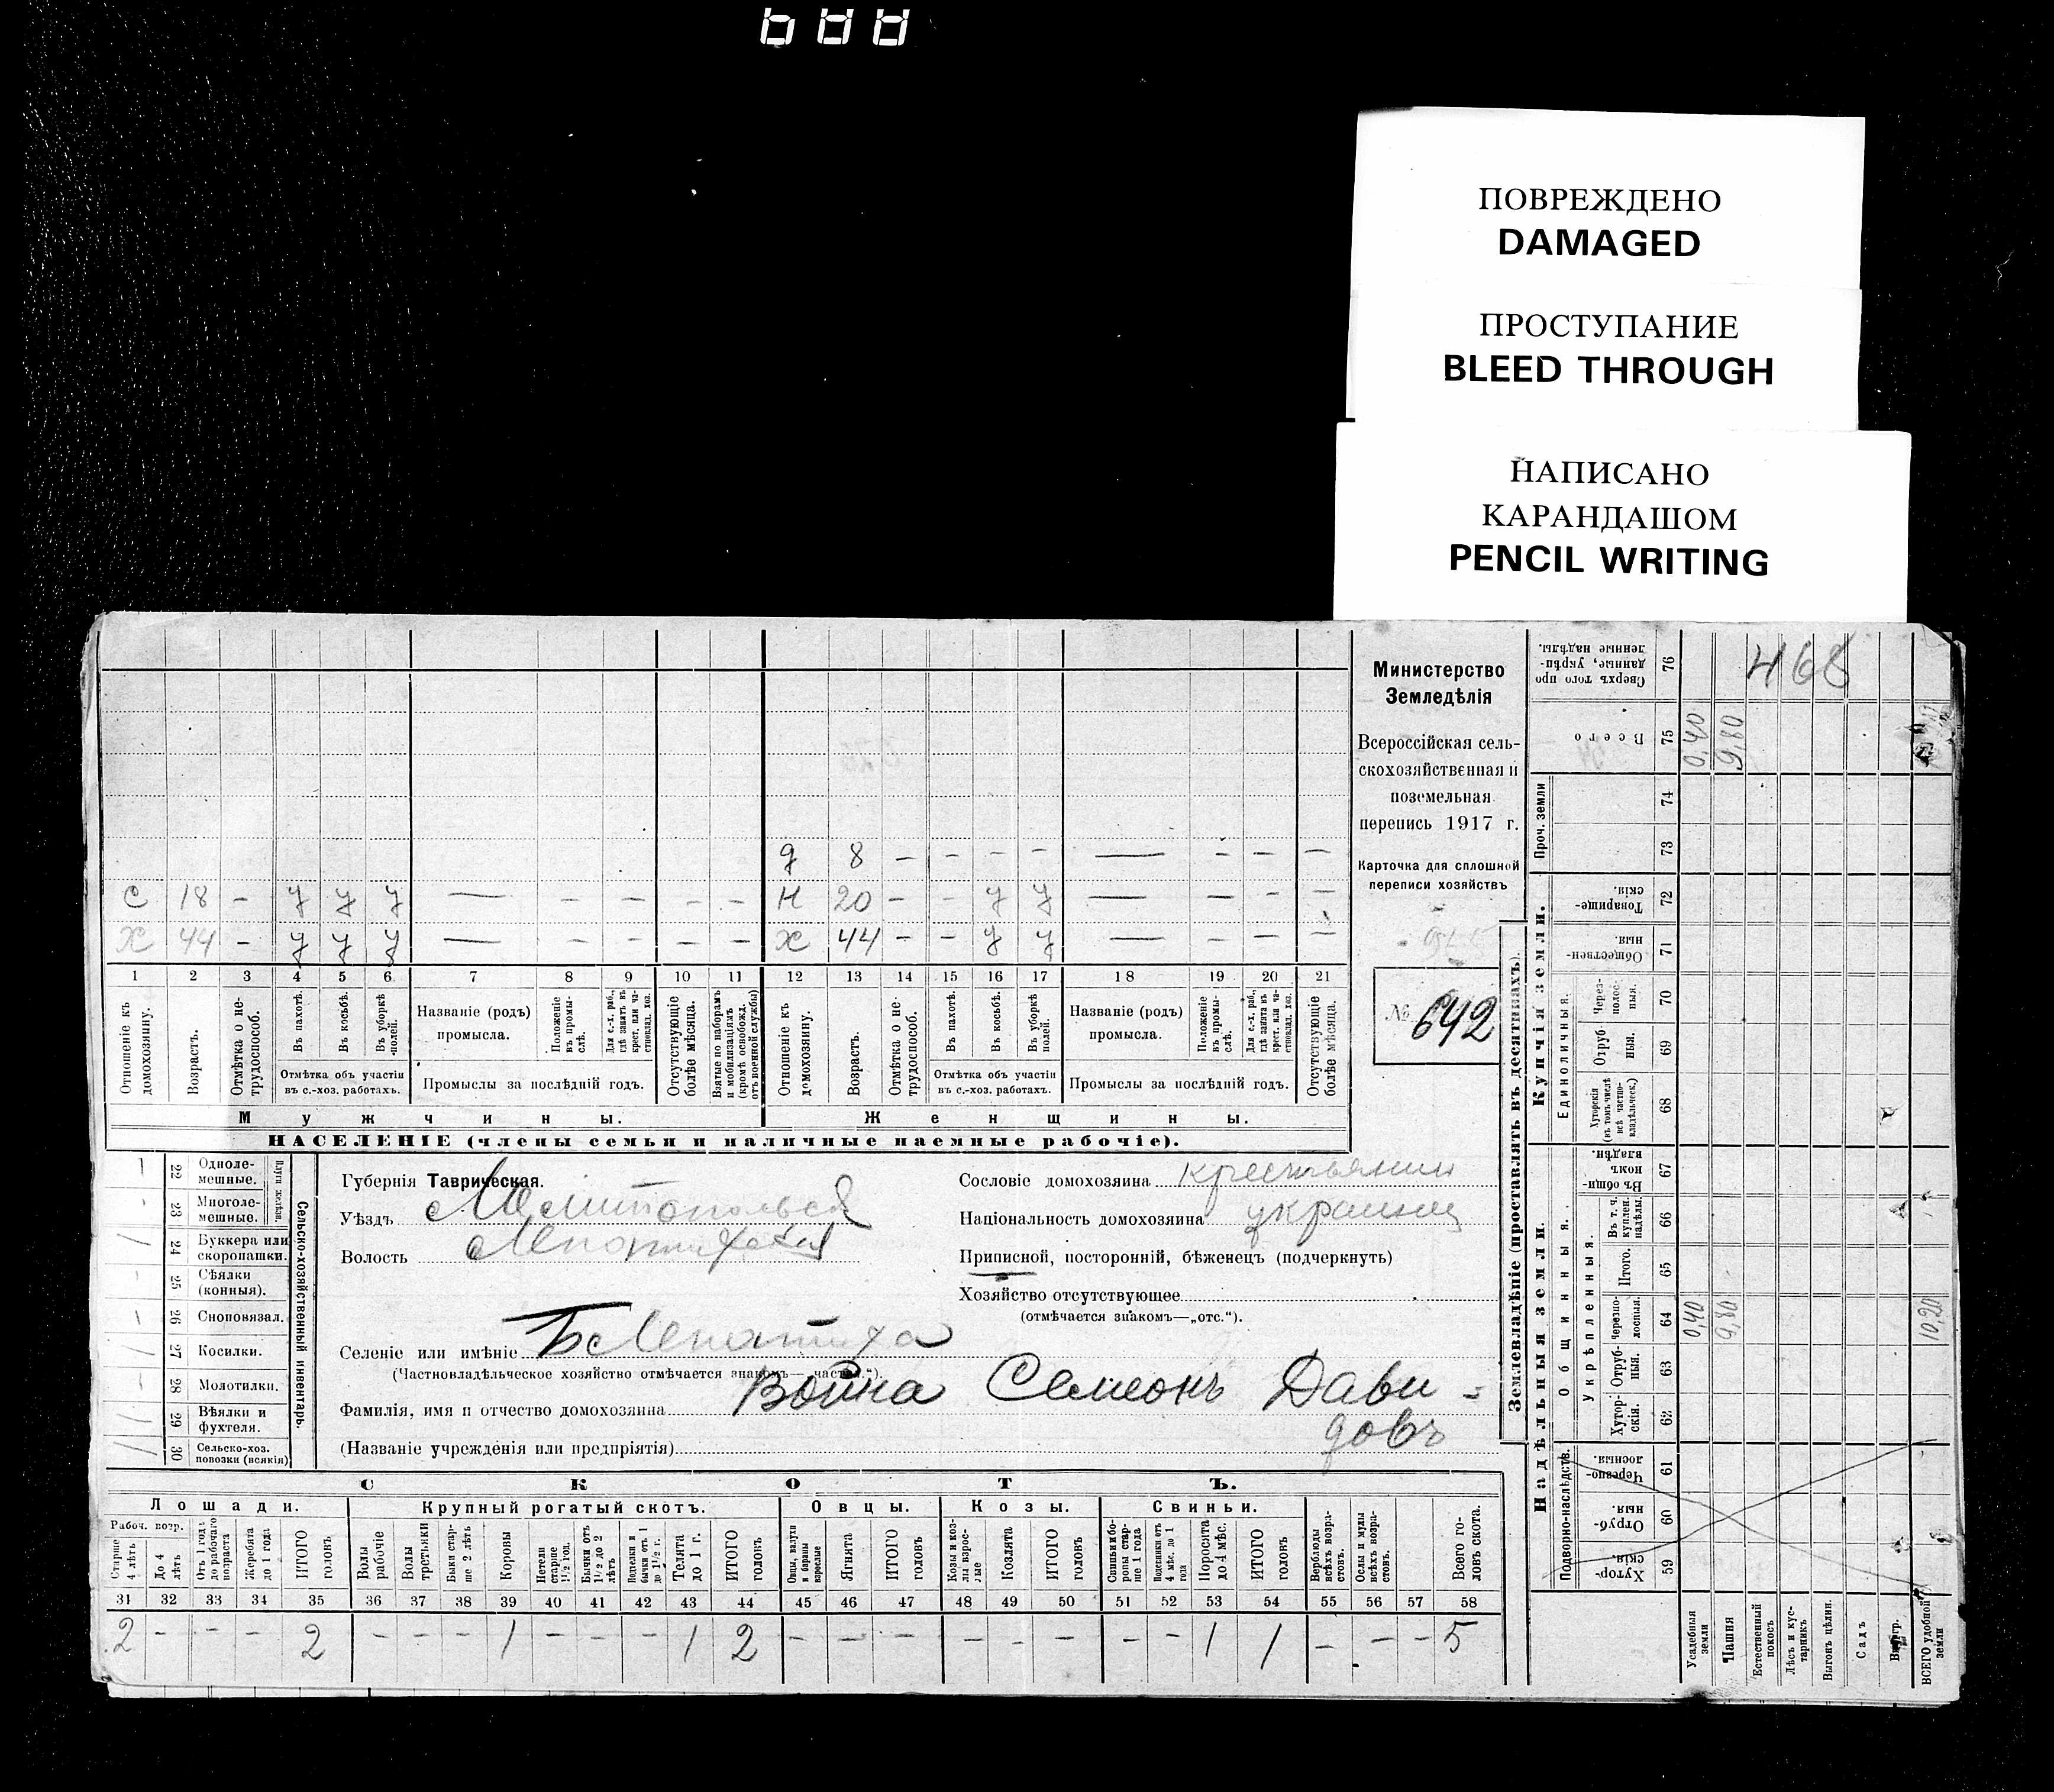 688
ПОВРЕЖДЕНО
DAMAGED
ПРОСТУПАНИЕ
BLEED THROUGH
НАПИСАНО
КАРАНДАШОМ
PENCIL WRITING
Министерство
Земледѣлія
Всероссійская сель-
скохозяйственная и
поземельная
перепись 1917 г.
Карточка для сплошной
переписи хозяйствъ
№ 642
д 8 – – – – — – – –
С 18 – У У У — – – – – Н 20 – – У У — – – –
Х 44 – У У У — – – – – Х 44 – – У У — – – –
1 2 3 4 5 6 7 8 9 10 11 12 13 14 15 16 17 18 19 20 21
Отношеніе къ домохозяину.
Возрастъ.
Отмѣтка о не-трудоспособ.
Въ пахотѣ.
Въ косьбѣ.
Въ уборкѣ полей.
Отмѣтка объ участіи
въ с.-хоз. работахъ.
Названіе (родъ)
промысла.
Положеніе въ промы-слѣ.
Для с.-х. раб., гдѣ занятъ въ крест. или ча-стновлад. хоз.
Промыслы за послѣдній годъ.
Отсутствующіе болѣе мѣсяца.
Взятые по наборамъ и мобилизаціямъ (кромѣ освобожд. отъ военной службы)
Отношеніе къ домохозяину.
Возрастъ.
Отмѣтка о не-трудоспособ.
Въ пахотѣ.
Въ косьбѣ.
Въ уборкѣ полей.
Отмѣтка объ участіи
въ с.-хоз. работахъ.
Названіе (родъ)
промысла.
Положеніе въ промы-слѣ.
Для с.-х. раб., гдѣ занята въ крест. или ча-стновлад. хоз.
Промыслы за послѣдній годъ.
Отсутствующіе болѣе мѣсяца.
Мужчины. Женщины.
НАСЕЛЕНІЕ (члены семьи и наличные наемные рабочіе).
Сельско-хозяйственный инвентарь.
Плуги желѣзн.
22 Одноле-
мешные.
23 Многоле-
мешные.
24 Буккера или
скоропашки.
25 Сѣялки
(конныя).
26 Сноповязал.
27 Косилки.
28 Молотилки.
29 Вѣялки и
фухтеля.
30 Сельско-хоз.
повозки (всякія)
Губернія Таврическая.
Уѣздъ Мелитопольск
Волость
Селеніе или имѣніе Б Лепатиха
(Частновладѣльческое хозяйство отмѣчается знакомъ—„частн.“).
Фамилія, имя и отчество домохозяина Война Семеонъ Дави-
довъ
(Названіе учрежденія или предпріятія)
Сословіе домохозяина крестьянин
Національность домохозяина украинец
Приписной, посторонній, бѣженецъ (подчеркнуть)
Хозяйство отсутствующее
(отмѣчается знакомъ—„отс.“).
СКОТЪ.
Лошади. Крупный рогатый скотъ. Овцы. Козы. Свиньи.
Рабоч. возр.
Старше 4 лѣтъ
До 4 лѣтъ
Отъ 1 года до рабочаго возраста
Жеребята до 1 года
ИТОГО головъ
Волы рабочіе
Волы третьяки
Быки стар-ше 2 лѣтъ
Коровы
Нетели старше 1½ год.
Бычки отъ 1½ до 2 лѣтъ
Подтелки и бычки отъ 1 до 1½ г.
Телята до 1 г.
ИТОГО головъ
Овцы, валухи и бараны взрослые
Ягнята
ИТОГО головъ
Козы и коз-лы взрос-лые
Козлята
ИТОГО головъ
Свиньи и бо-ровы стар-ше 1 года
Подсвинки отъ 4 мѣс. до 1 года
Поросята до 4 мѣс.
ИТОГО головъ
Верблюды всѣхъ возра-стовъ.
Ослы и мулы всѣхъ возра-стовъ.
Всего го-ловъ скота.
31 32 33 34 35 36 37 38 39 40 41 42 43 44 45 46 47 48 49 50 51 52 53 54 55 56 57 58
2 – – – 2 – – – 1 – – – 1 2 – – – – – – – – 1 1 – – – 5
Землевладѣніе (проставлять въ десятинахъ).
Надѣльныя земли. Купчія земли.
Подворно-наслѣдств.
Общинныя.
Укрѣпленныя.
Единоличныя.
Проч. земли
Хутор-скія. 59
Отруб-ныя. 60
Черезпо-лосныя. 61
Хутор-скія. 62
Отруб-ныя. 63
Черезпо-лосныя. 64
Итого. 65
Въ т. ч. куплен. надѣлы. 66
Въ общи-номъ владѣн. 67
Хуторскія (въ томъ числѣ всѣ частно-владѣльческ.) 68
Отруб-ныя. 69
Через-полос-ныя. 70
Обществен-ныя. 71
Товарище-скія. 72
73
74
Всего 75
Сверхъ того про-данные, укрѣп-ленные надѣлы. 76
468
Усадебныя земли 0,40 0,40
Пашня 9,80 9,80
Естественный покосъ
Лѣсъ и кус-тарникъ
Выгонъ цѣлин.
Садъ
ВСЕГО удобной земли 10,20